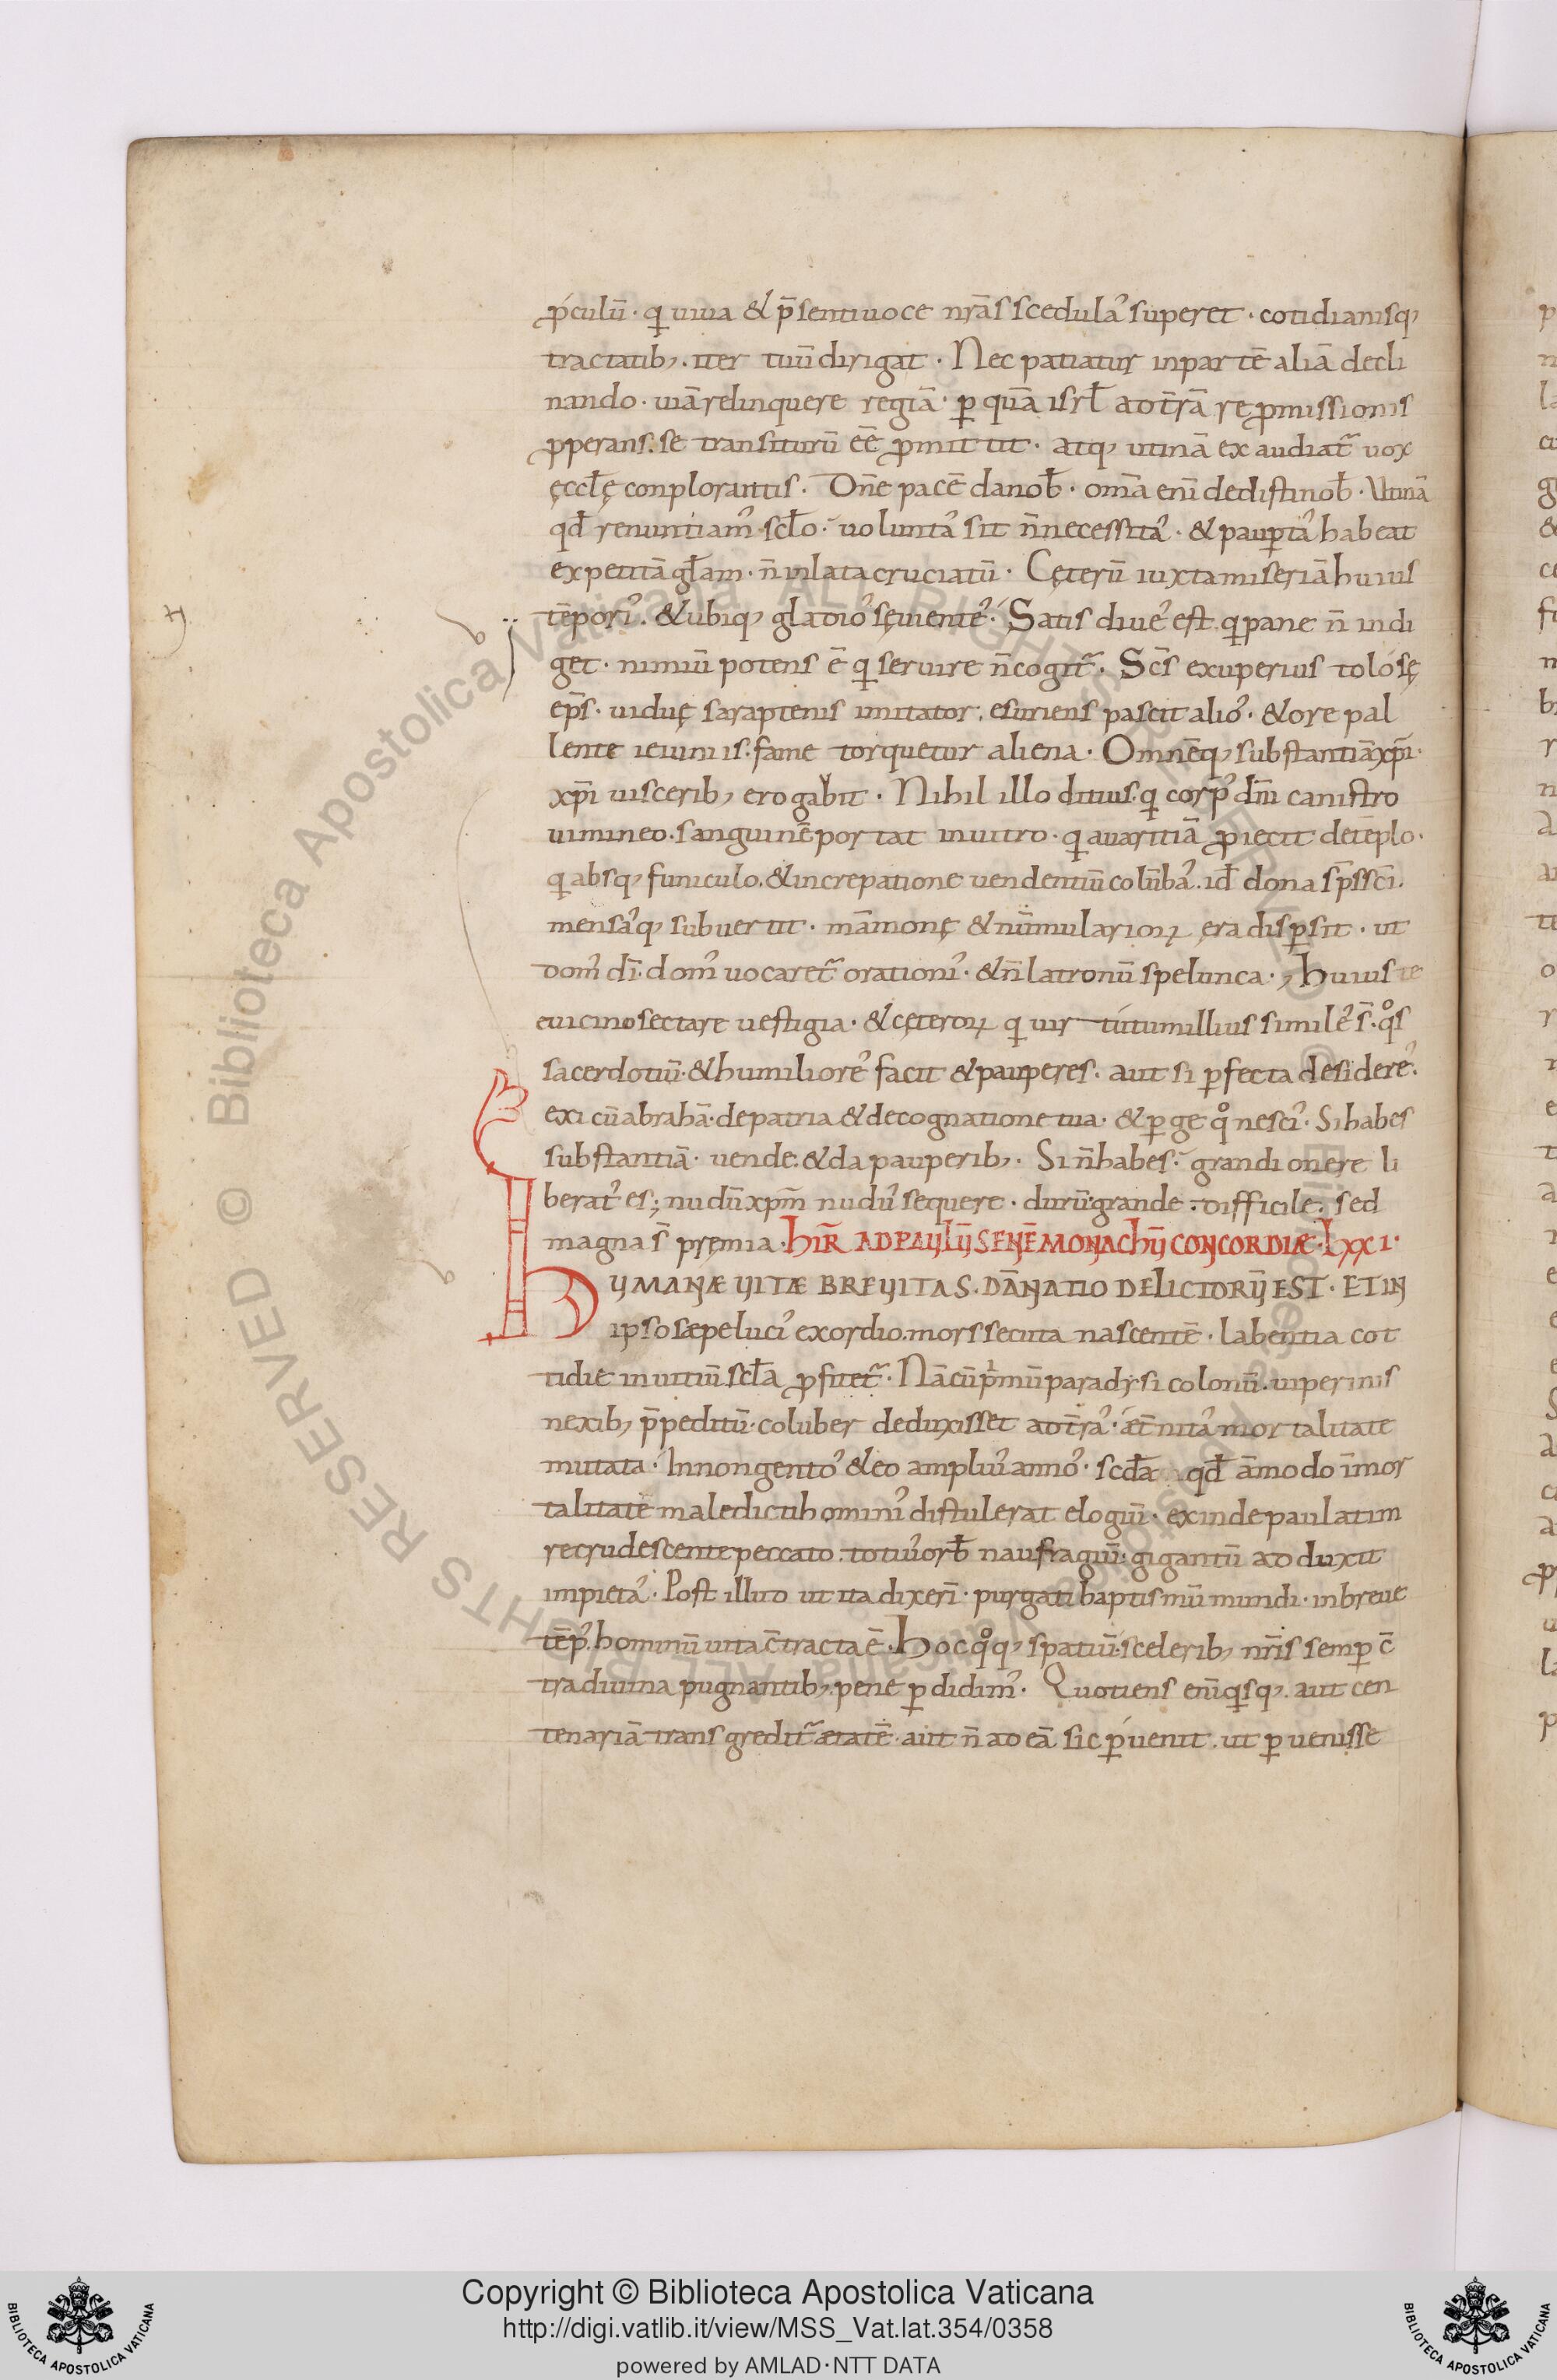 ꝓculū · q̄ uiua & p̄senti uoce nr̄as scedulaˀ superet · cotidianisq;
tractatib; . iter tuū dirigat · Nec patiatur in partē aliā decli
nando · uiā relinquere regiā · ꝑ quā isrł ad tr̄ā reꝓmissionis
ꝓperans. se transiturū eē ꝓmittit · atq; utinā exaudiat̄ uox
ęccłę conplorantis · Dn̄e pacē da nob̄ · om̄a eni dedisti nob̄ · Utinā
qd̄ renuntiamˀ scło · uoluntaˀ sit n̄ necessitaˀ · & pauꝑtaˀ habeat
expetitā głam · n̄ inlata cruciatū · Cęterū iuxta miseriā huius
tēporiˀ . & ubiq; gladioˀ sęuienteˀ · Satis diueˀ est q̄ pane n̄ indi
get · nimiū potens ē q̄ seruire n̄ cogit̄ · Scs̄ exuperius tolosę
ep̄s · uiduę saraptenis imitator . esuriens pascit alioˀ · & ore pal
lente ieiuniis . fame torquetur aliena · Omnēq; substantiā xp̄i ·
xp̄i uiscerib; erogabit · Nihil illo ditius . q̄ corpˀ dn̄i canistro
uimineo . sanguinē portat in uitro · q̄ auaritiā ꝓiecit de tēplo ·
q̄ absq; funiculo . & increpatione uendentiū colūbaˀ . id̄ dona sp̄s sc̄i .
mensaˀq; subuertit · māmonę & nūmularioꝝ ęra disꝑsit · ut
domˀ dī · domˀ uocaret̄ orationiˀ · & n̄ latronū spelunca · Huius ie
euicino sectare uestigia · & cęteroꝝ q̄ uirtutum illius simileˀ s̄ . qo̊s
sacerdotiū · & humilioreˀ facit & pauperes . aut si ꝑfecta desidereˀ .
exi cū abrahā · de patria & de cognatione tua · & ꝑge qo̊ nesciˀ · Si habes
substantiā · uende . & da pauperib; · Si n̄ habes · grandi onere li
beratˀ es ; nudū xpm̄ nudˀ sequere · durū grande . difficile . sed
magna s̄ pręmia · HIR̄ AD PAULŪ SENĒ MONACHŪ CONCORDIÆ · LXXI ·
HUMANÆ UITÆ BREUITAS · DĀNATIO DELICTORŪ EST · ET IN
ipso sæpe luciˀ exordio . mors secuta nascentē · labentia cot
tidie in uitiū scłā ꝓfitet̄ · Nā cū pͥmū paradysi colonū . uiperinis
nexib; p̄peditū · coluber deduxisset ad tr̄aˀ · æt̄nitaˀ mortalitate
mutata · In nongentoˀ & eo ampliuˀ annoˀ · scd̄a qd̄ āmodo īmor
talitatē maledicti hominiˀ distulerat elogiū · exinde paulatim
recrudescente peccato . totiuˀ orb̄ naufragiū : gigantū adduxit
impietaˀ · Post illud ut ita dixerī · purgati baptismū mundi · in breue
tēpˀ . hominū uita c̄tracta ē · Hoc qo̊q; spatiū . scelerib; nr̄is semꝑ c̄
tra diuina pugnantib; . pene ꝑdidimˀ · Quotiens eni q̄sq; . aut cen
tenariā transgredit̄ ætatē · aut n̄ ad eā sic ꝑuenit . ut ꝑuenisse
Copyright © Biblioteca Apostolica Vaticana
http://digi.vatlib.it/view/MSS_Vat.lat.354/0358
powered by AMLAD·NTT DATA
BIBLIOTECA APOSTOLICA VATICANA
BIBLIOTECA APOSTOLICA VATICANA